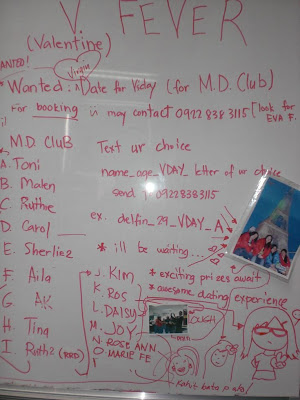 V. FEVER
(Valentine)
WANTED!
Virgin
* Wanted: Date for Vday (for M.D. Club)
For booking u may contact 0922 838 3115 [look for
EVA F.
M.D CLUB Text ur choice
A. Toni name_age_VDAY_letter of ur choice
B. Malen send 2 09228383115
C. Ruthie
D. Carol ex. delfin_29_VDAY_A
E. Sherline * ill be waiting...
F. Aila
G. AK
H. Ting
I. Ruth2
J. KIM * exciting prizes await
K. ROS * awesome dating experience
L. DAISY
M. JOY
N. ROSE ANN
O. MARIE FE
OUGH!
Kahit bata pato!